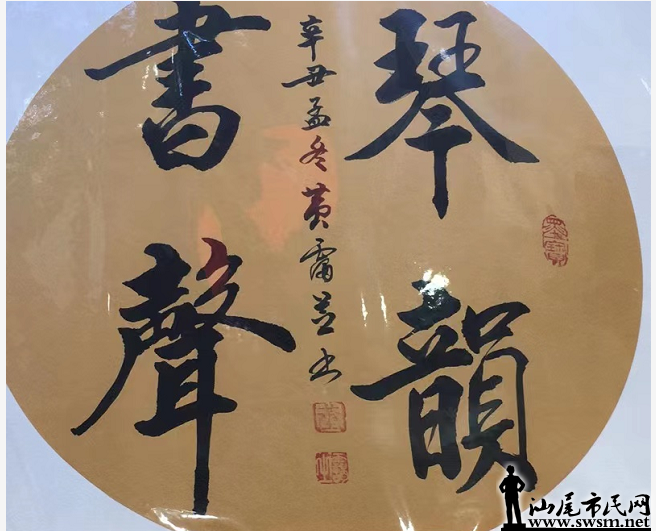 琴韻
書聲
辛丑孟冬黄霈芸书
汕尾市民网
www.swsm.net